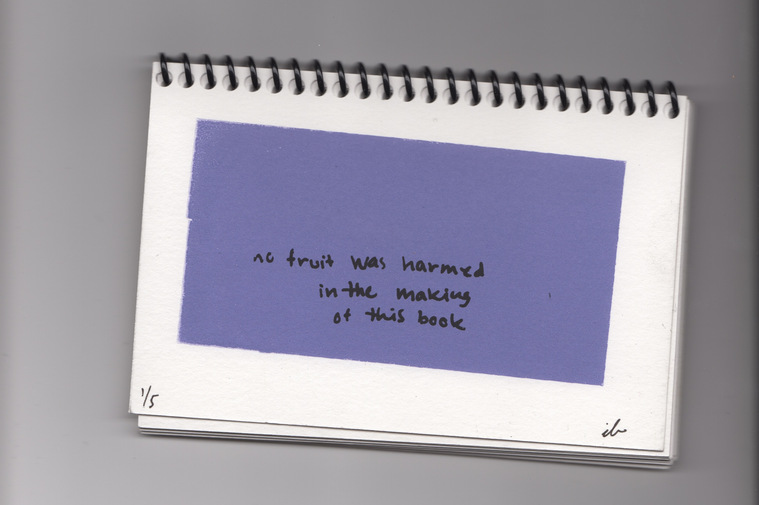 no fruit was harmed
in the making
of this book
1/5